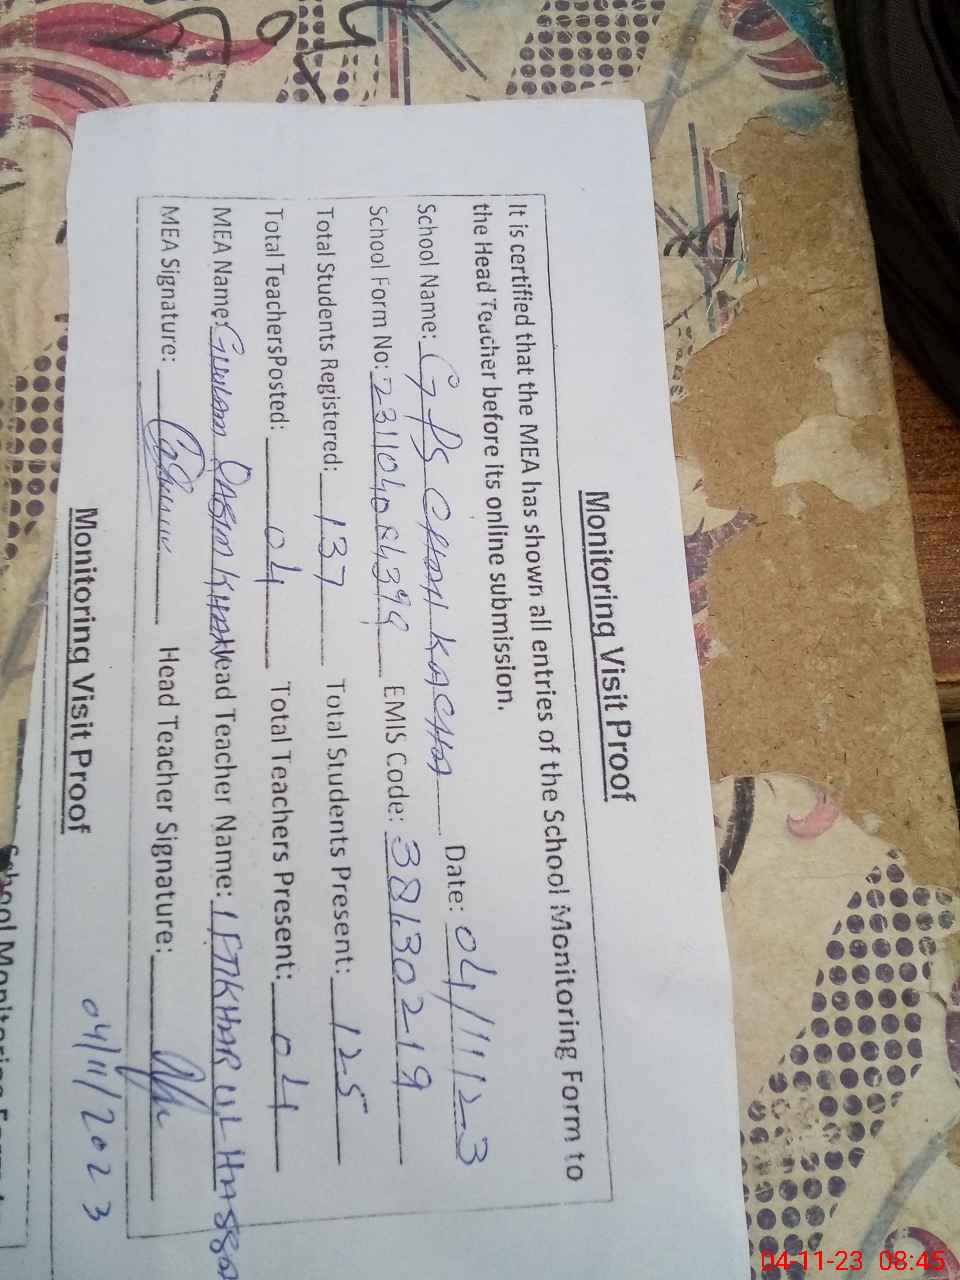 Monitoring Visit Proof
It is certified that the MEA has shown all entries of the School Monitoring Form to
the Head Teacher before its online submission.
School Name: GPS CHAH KACHA Date: 04/11/23
School Form No: 23110404399 EMIS Code: 38130219
Total Students Registered: 137 Total Students Present: 125
Total TeachersPosted: 04 Total Teachers Present: 04
MEA Name: GHULAM QASIM KHAN Head Teacher Name: IFTIKHAR UL HASSA
MEA Signature: Head Teacher Signature:
04/11/2023
Monitoring Visit Proof
School Monitoring Form
04-11-23 08:45